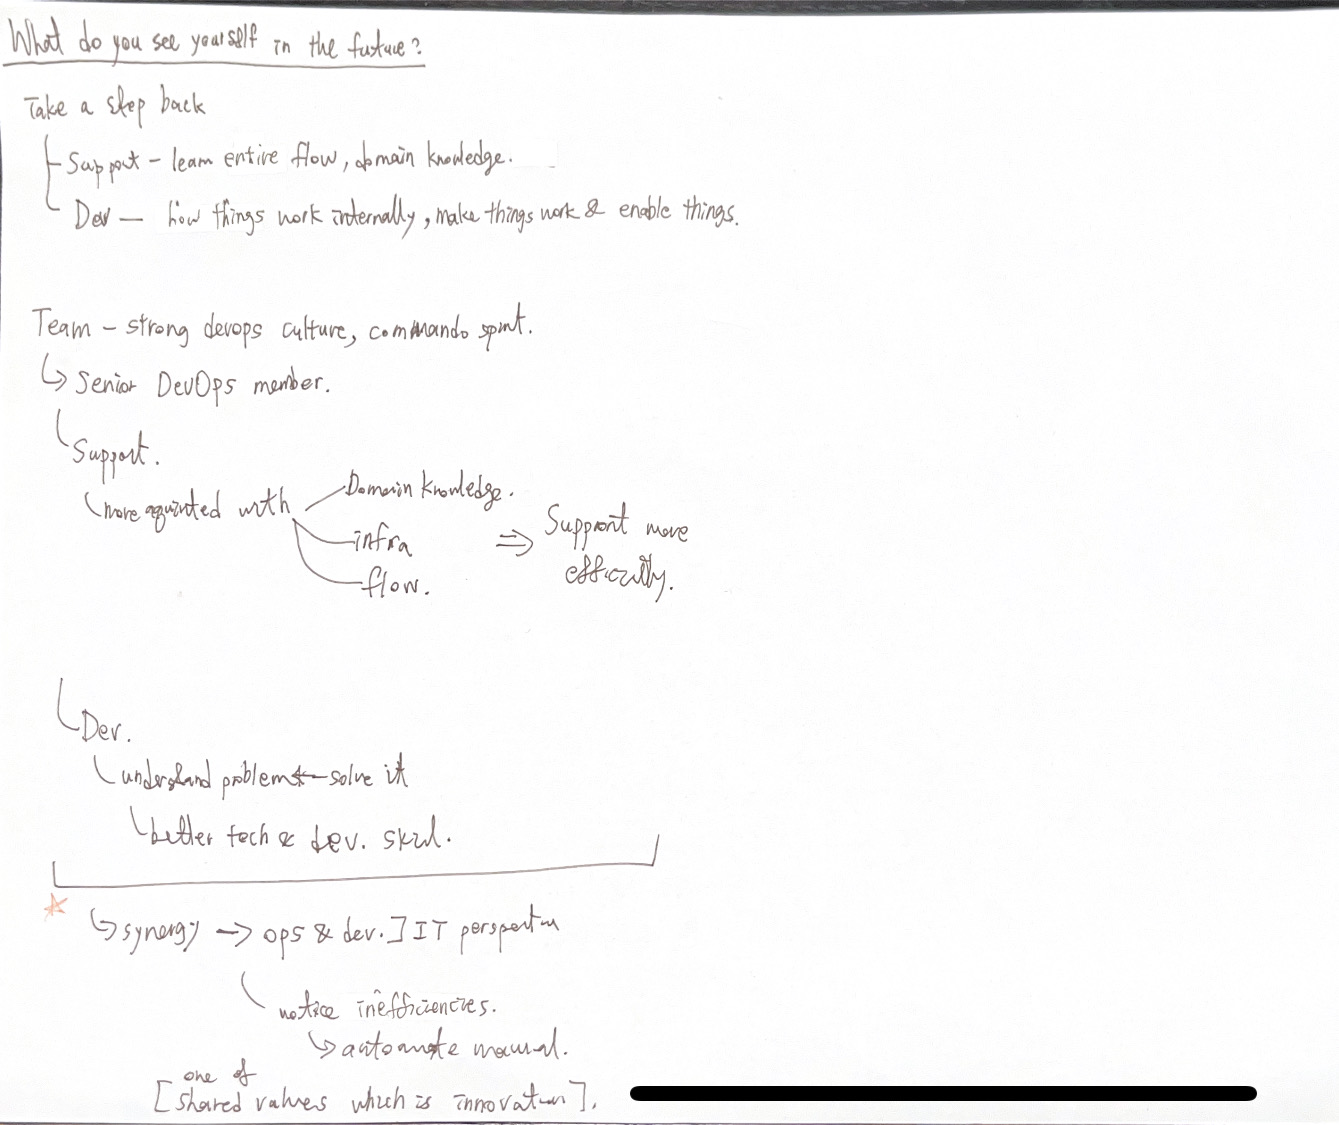 What do you see yourself in the future?
Take a step back
Support – learn entire flow, domain knowledge.
Dev – how things work internally, make things work & enable things.
Team – strong devops culture, commando spirit.
↳ Senior DevOps member.
Support.
more aquinted with
Domain knowledge.
infra
flow.
⇒ Support more
Dev.
understand problem ← solve it
better tech & dev. skill.
↳ synergy → ops & dev. ] IT perspective
notice inefficiencies.
↳ automate manual.
one of
[shared values which is innovation].